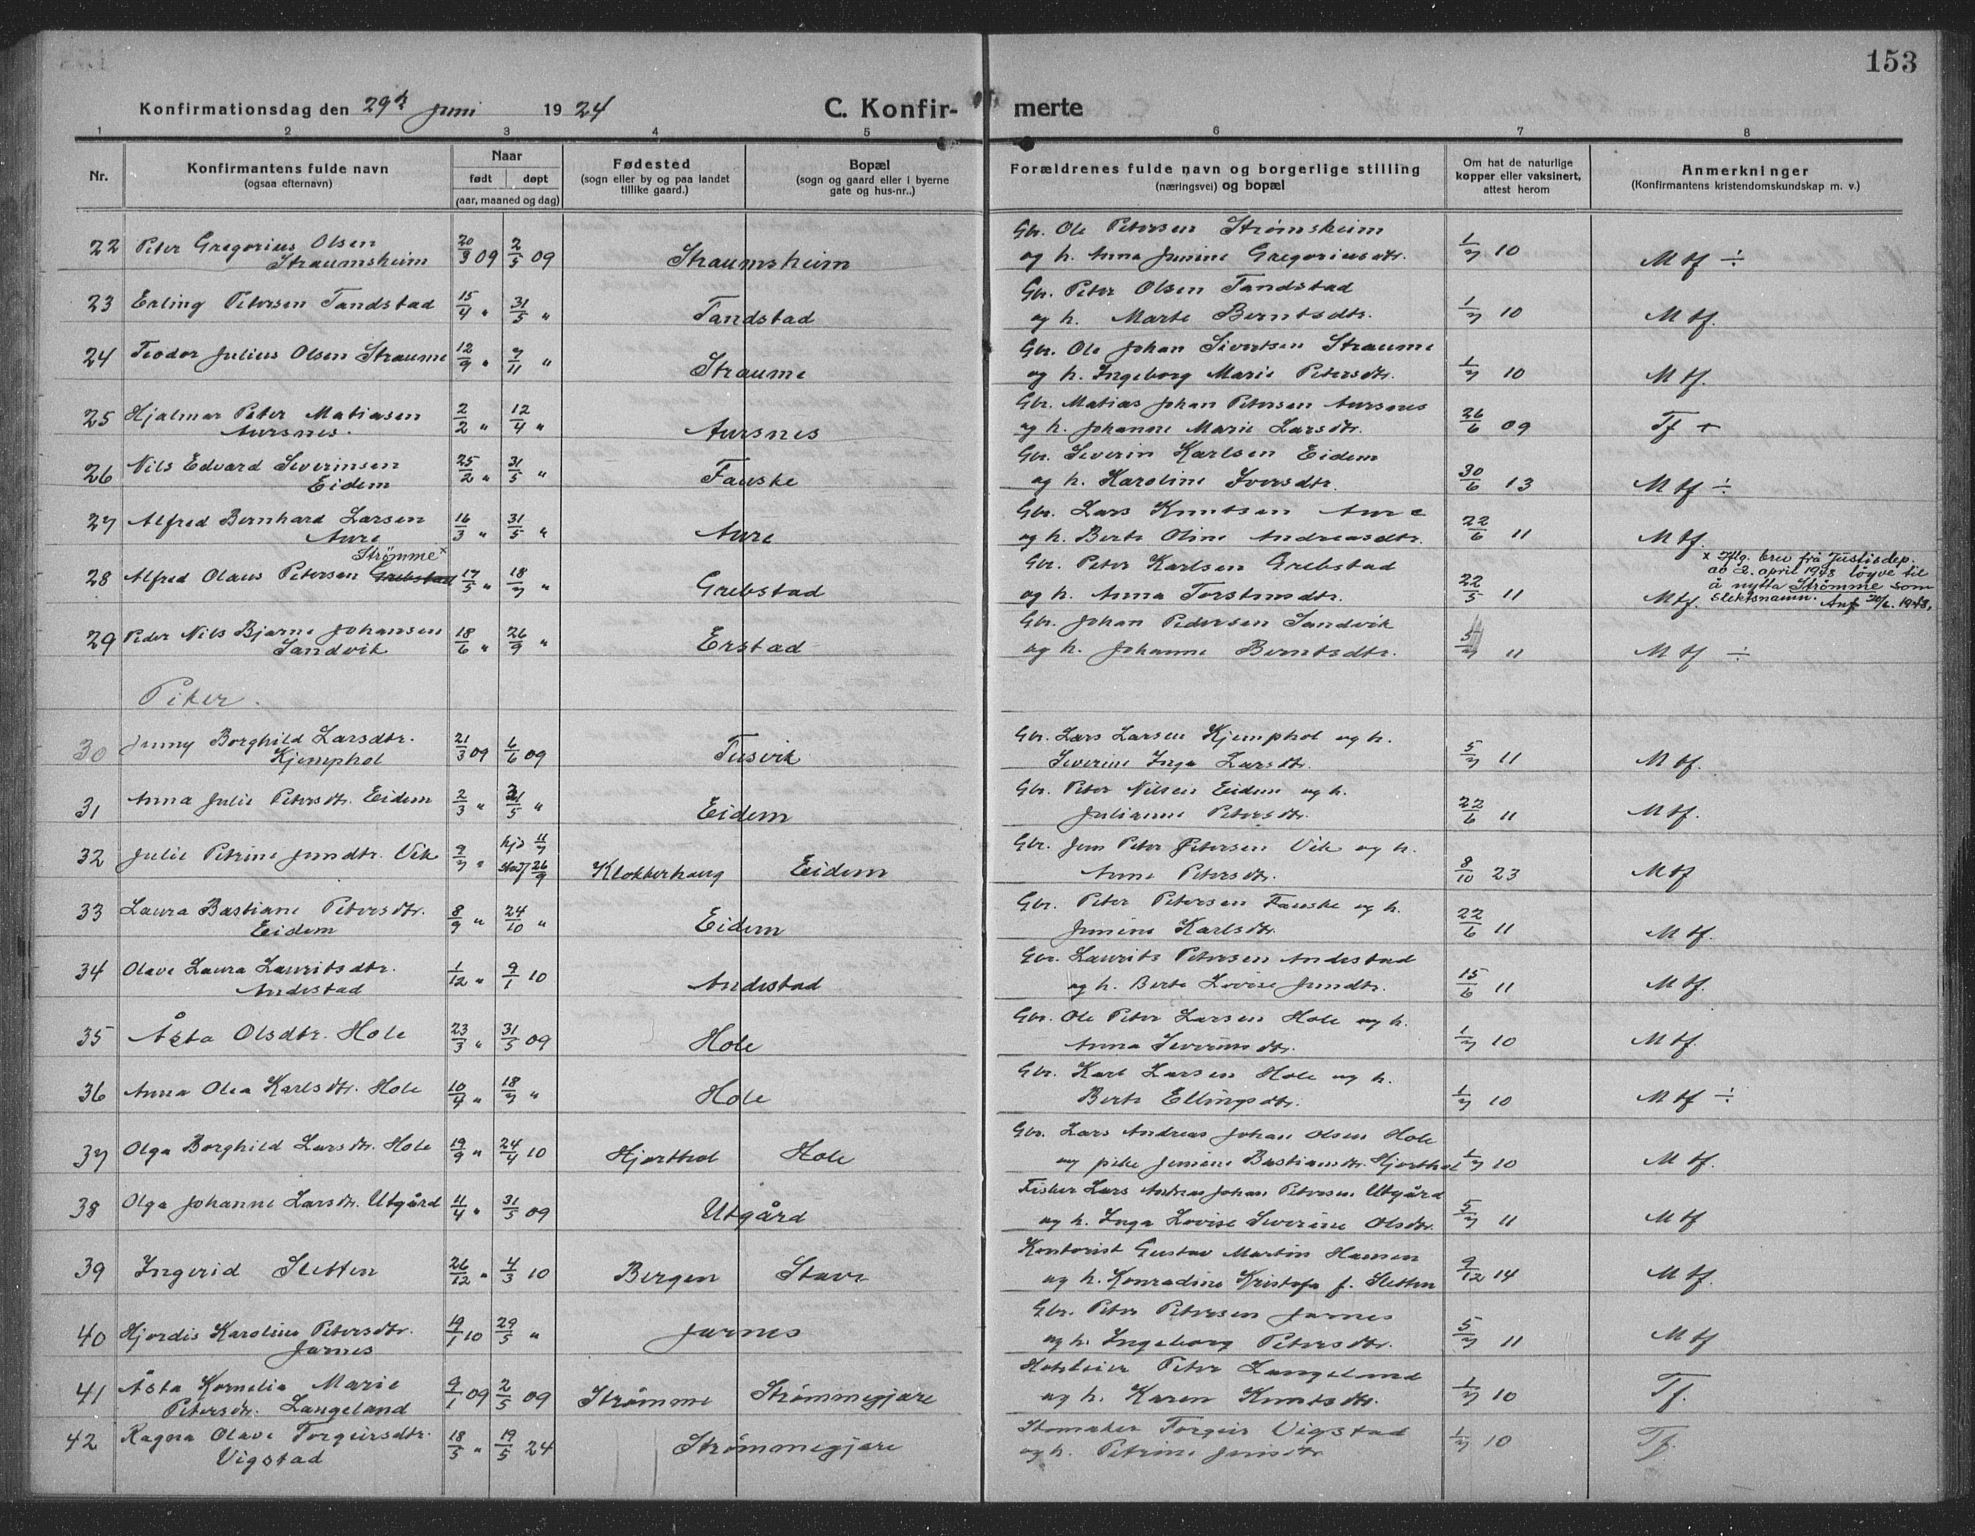 153
Konfirmationsdag den 29de Juni 1924 C. Konfirmerte
1 2 3 4 5 6 7 8
Nr. Konfirmantens fulde navn (ogsaa efternavn) Naar født døpt (aar, maaned og dag) Fødested (sogn eller by og paa landet tillike gaard.) Bopæl (sogn og gaard eller i byerne gate og hus-nr..) Forældrenes fulde navn og borgerlige stilling (næringsvei) og bopæl Om hat de naturlige kopper eller vaksinert, attest herom Anmerkninger (Konfirmantens kristendomskundskap m. v.)
22 Peter Gregorius Olsen Straumsheim 20/3 09 2/5 09 Straumsheim Gbr. Ole Petersen Strømsheim og h. Anna Jensine Gregoriusdtr. 1/7 10 Mtf ÷
23 Erling Petersen Tandstad 15/4 " 31/5 " Tandstad Gbr. Peter Olsen Tandstad og h. Marte Berntsdtr. 1/7 10 Mtf.
24 Teodor Julius Olsen Straume 12/9 " 7/11 " Straume Gbr. Ole Johan Sivertsen Straume og h. Ingeborg Marie Petersdtr. 1/7 10 Mtf.
25 Hjalmar Peter Matiasen Aursnes. 2/2 " 12/4 " Aursnes Gbr. Matias Johan Petersen Aursnes og h. Johanne Marie Larsdtr. 26/6 09 Tf +
26 Nils Edvard Severinsen Eidem 25/2 " 31/5 " Fauske Gbr. Severin Karlsen Eidem og h. Karoline Iversdtr. 30/6 13 Mtf ÷
27 Alfred Bernhard Larsen Aure 16/3 " 31/5 " Aure Gbr. Lars Knutsen Aure og h. Berte Oline Andreasdtr. 22/6 11 Mtf.
28 Alfred Olaus Petersen Grebstad Strømme x 17/5 " 18/7 " Grebstad Gbr. Peter Karlsen Grebstad og h. Anna Torstensdtr. 22/5 11 Mtf.
x Iflg. brev frå Justisdep.
av 2. april 1948 løyve til
å nytta Strømme som
slektsnamn. Auf 20/6. 1948.
29 Peder Nils Bjarne Johansen Sandvik 18/6 " 26/9 " Erstad Gbr. Johan Pedersen Sandvik og h. Johanne Berntsdtr. 5/7 11 Mtf ÷
Piker.
30 Jenny Borghild Larsdtr. Kjemphol 21/3 09 6/6 09 Tusvik Gbr. Lars Larsen Kjemphol og h. Severine Inga Larsdtr. 5/7 11 Mtf.
31 Anna Julie Petersdtr. Eidem 2/3 " 31/5 " Eidem Gbr. Peter Nilsen Eidem og h. Julianne Petersdtr. 22/6 11 Mtf.
32 Julie Petrine Jensdtr. Vik 7/7 " hjd 11/7 stadf 26/9 Klokkerhaug Eidem Gbr. Jens Peter Petersen Vik og h. Anne Petersdtr. 8/10 23 Mtf
33 Laura Bastiane Petersdtr. Eidem 8/9 " 24/10 " Eidem Gbr. Peter Petersen Fauske og h. Jensine Karlsdtr. 22/6 11 Mtf.
34 Olave Laura Lauritsdtr. Andestad 1/12 " 9/1 10 Andestad Gbr. Laurits Petersen Andestad og h. Berte Lovise Jensdtr. 15/6 11 Mtf.
35 Åsta Olsdtr. Hole 23/3 " 31/5 09 Hole Gbr. Ole Peter Larsen Hole og h. Anna Severinsdtr. 1/7 10 Mtf.
36 Anna Olea Karlsdtr. Hole 10/4 " 18/7 " Hole Gbr. Karl Larsen Hole og h. Berte Ellingsdtr. 1/7 10 Mtf ÷
37 Olga Borghild Larsdtr. Hole 19/9 " 24/4 10 Hjorthol Hole Gbr. Lars Andreas Johan Olsen Hole og pike Jensine Bastiansdtr. Hjorthol 1/7 10 Mtf.
38 Olga Johanne Larsdtr. Utgård 4/4 " 31/5 09 Utgård Fisker Lars Andreas Johan Petersen Utgård og h. Inga Lovise Severine Olsdtr. 5/7 11 Mtf
39 Ingerid Sletten 26/12 " 4/3 10 Bergen Stave Kontorist Gustav Martin Hansen og h. Konradine Kristofa f. Sletten 9/12 14 Mtf.
40 Hjordis Karoline Petersdtr. Jarnes 19/1 10 29/5 " Jarnes Gbr. Peter Petersen Jarnes og h. Ingeborg Petersdtr. 5/7 11 Mtf
41 Åsta Kornelia Marie Petersdtr. Langeland 9/1 09 2/5 09 Strømme Strømmegjære Peter Langeland og h. Karen Knutsdtr. 1/7 10 Tf.
42 Ragna Olave Torgeirsdtr. Vigstad 18/5 " 19/5 24 Strømmegjære Skomaker Torgeir Vigstad og h. Petrine Jensdtr 1/7 10 Tf.